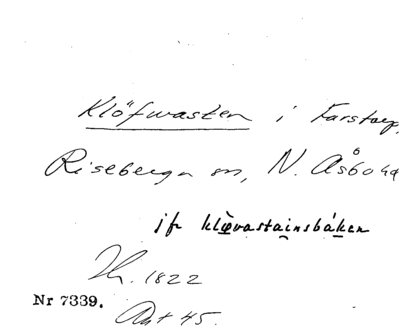 Klöfwasten i Farstorp,
Riseberga sn, N. Åsbo hd
jfr klø̀vastainsbáken
Th. 1822
Nr 7339.
Ant 45.